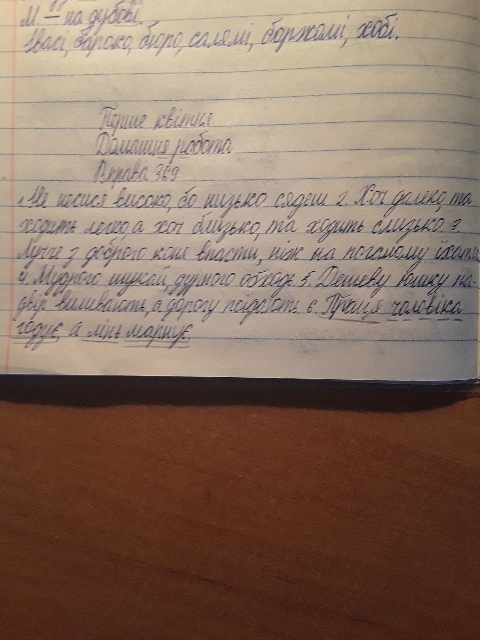 М — на дубові.
Івасі, барокко, бюро, салямі, боржомі, хобі.
Перше квітня
Домашня робота
Вправа 369
1. Не несися високо, бо низько сядеш 2. Хоч далеко, та
ходить легко, а хоч близько, та ходить слизько. 3.
Лучче з доброго коня впасти, ніж на поганому їхати
4. Мудрого шукай, дурного обходь 5. Дешеву юшку на-
двір виливають, а дорогу поїдають 6. Праця чоловіка
годує, а лінь марнує.